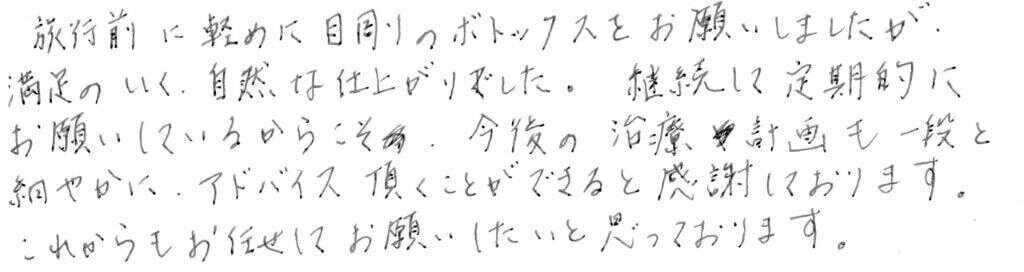 旅行前に軽めに目周りのボトックスをお願いしましたが、
満足のいく、自然な仕上がりでした。 継続して定期的に
お願いしているからこそ、今後の治療計画も一段と
細やかに、アドバイス頂くことができると感謝しております。
これからもお任せしてお願いしたいと思っております。